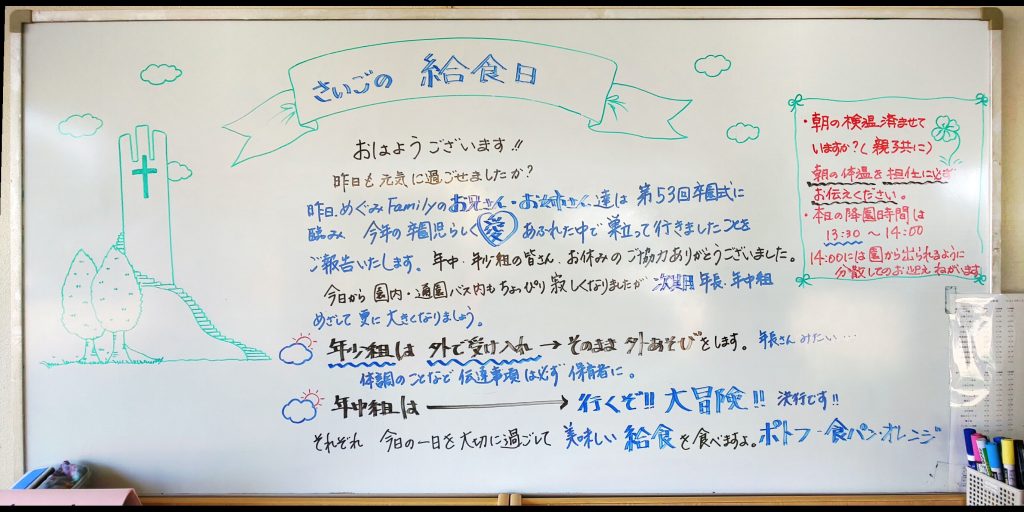 さいごの 給食日
おはようございます!!
昨日も元気に過ごせましたか?
昨日、めぐみFamilyのお兄さん・お姉さん達は 第53回卒園式に
臨み 今年の卒園児らしく 愛 あふれた中で 巣立って行きましたことを
ご報告いたします。年中・年少組の皆さん、お休みのご協力ありがとうございました。
今日から園内・通園バス内もちょっぴり寂しくなりましたが 次期目 年長・年中組
めざして更に大きくなりましょう。
年少組は 外で受け入れ → そのまま外あそびをします。年長さんみたい…
体調のことなど 伝達事項は必ず 保育者に。
年中組は → 行くぞ!! 大冒険!! 決行です!!
それぞれ 今日の一日を大切に過ごして 美味しい 給食を食べますよ。ポトフ・食パン・オレンジ
・朝の検温、済ませて
いますか?(親子共に)
朝の体温を担任に必ず
お伝えください。
・本日の降園時間は
13:30 ～ 14:00
14:00には園から出られるように
分散してのお迎え ねがいます